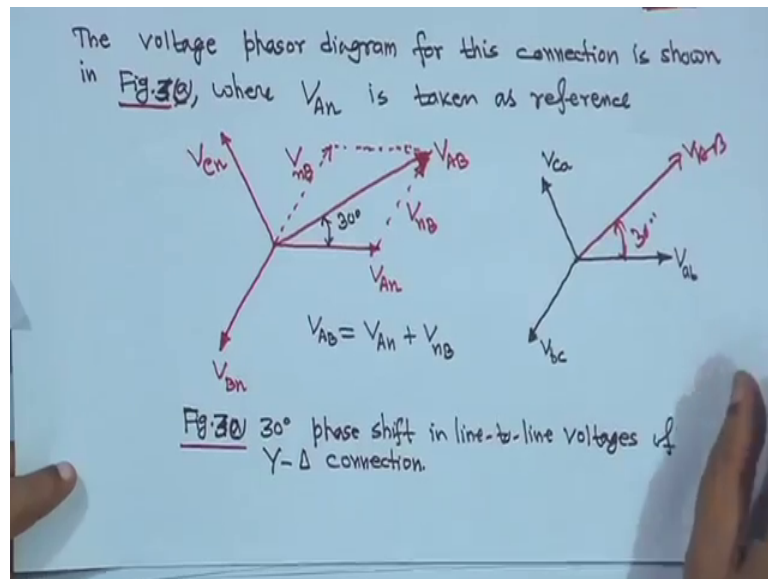 The voltage phasor diagram for this connection is shown
in Fig. where VAn is taken as reference
VCn
VnB
VAB
30°
VnB
VAn
VBn
VAB = VAn + VnB
Vca
VAB
30°
Vab
Vbc
30° phase shift in line-to-line voltages of
Y-Δ connection.